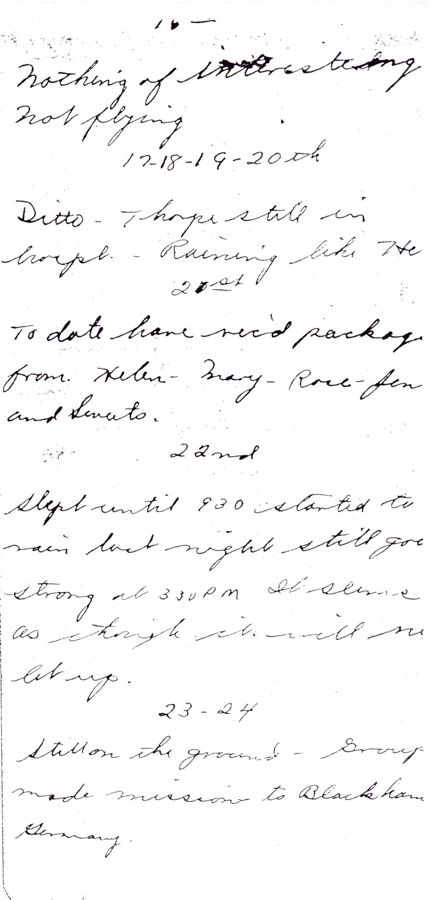 16 -
Nothing of interesteding
Not flying
17-18-19-20th
Ditto - Thorpe still in
hospt. - Raining like He
21st
To date have rec'd packag
from Helen - Mary - Rose - Jen
and
22nd
Slept until 930 started to
rain last night still goi
strong at 330 PM It seems
as though it will ne
let up.
23-24
Still on the ground - Group
made mission to Blackham
Germany.